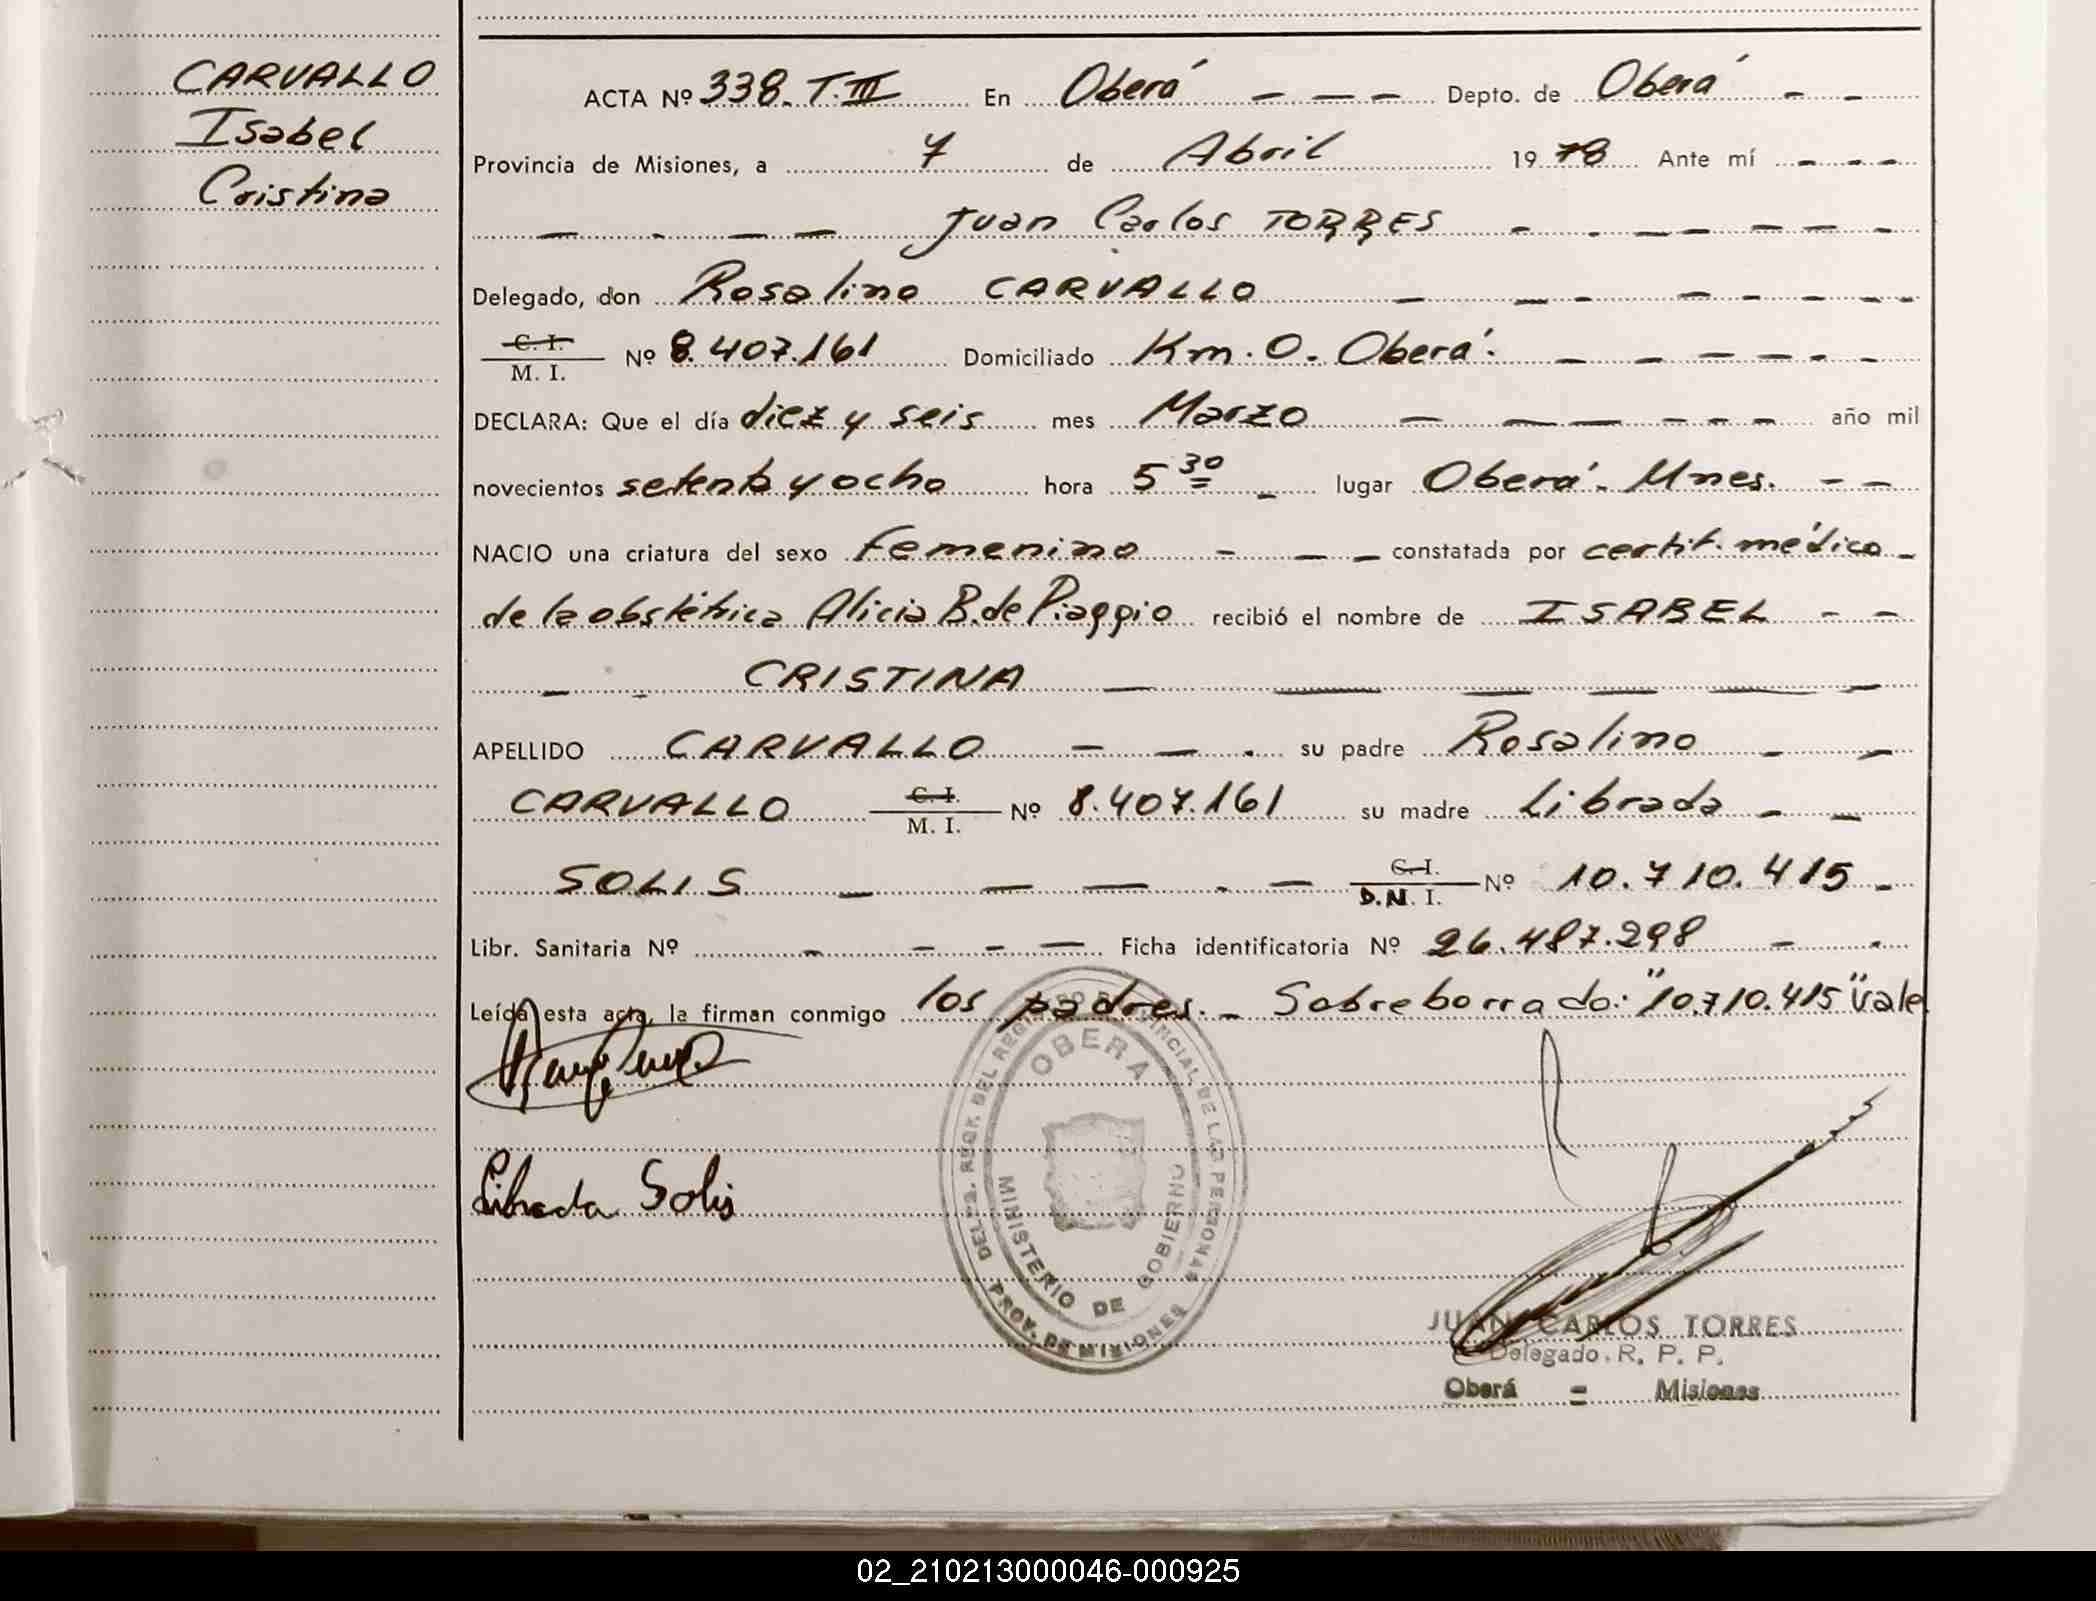 CARVALLO
Isabel
Cristina
ACTA Nº 338. T. III En Oberá Depto. de Oberá
Provincia de Misiones, a 7 de Abril 1978 Ante mí
Juan Carlos TORRES
Delegado, don Rosalino CARVALLO
C. I.
M. I. Nº 8.407.161 Domiciliado Km. 0. Oberá.
DECLARA: Que el día diez y seis mes Marzo año mil
novecientos setenta y ocho hora 5 30 lugar Oberá. Mnes.
NACIO una criatura del sexo femenino constatada por certif. médico
de la obstétrica Alicia B. de Piaggio recibió el nombre de ISABEL
CRISTINA
APELLIDO CARVALLO su padre Rosalino
CARVALLO C. I. M. I. Nº 8.407.161 su madre Librada
SOLIS C. I. D. N. I. Nº 10.710.415
Libr. Sanitaria Nº Ficha identificatoria Nº 26.487.298
Leída esta acta, la firman conmigo los padres. Sobreborrado: "10.710.415" vale
Librada Solis
OBERA
MINISTERIO DE GOBIERNO
PROV. DE MISIONES
JUAN CARLOS TORRES
Delegado R. P. P.
Oberá = Misiones
02_210213000046-000925